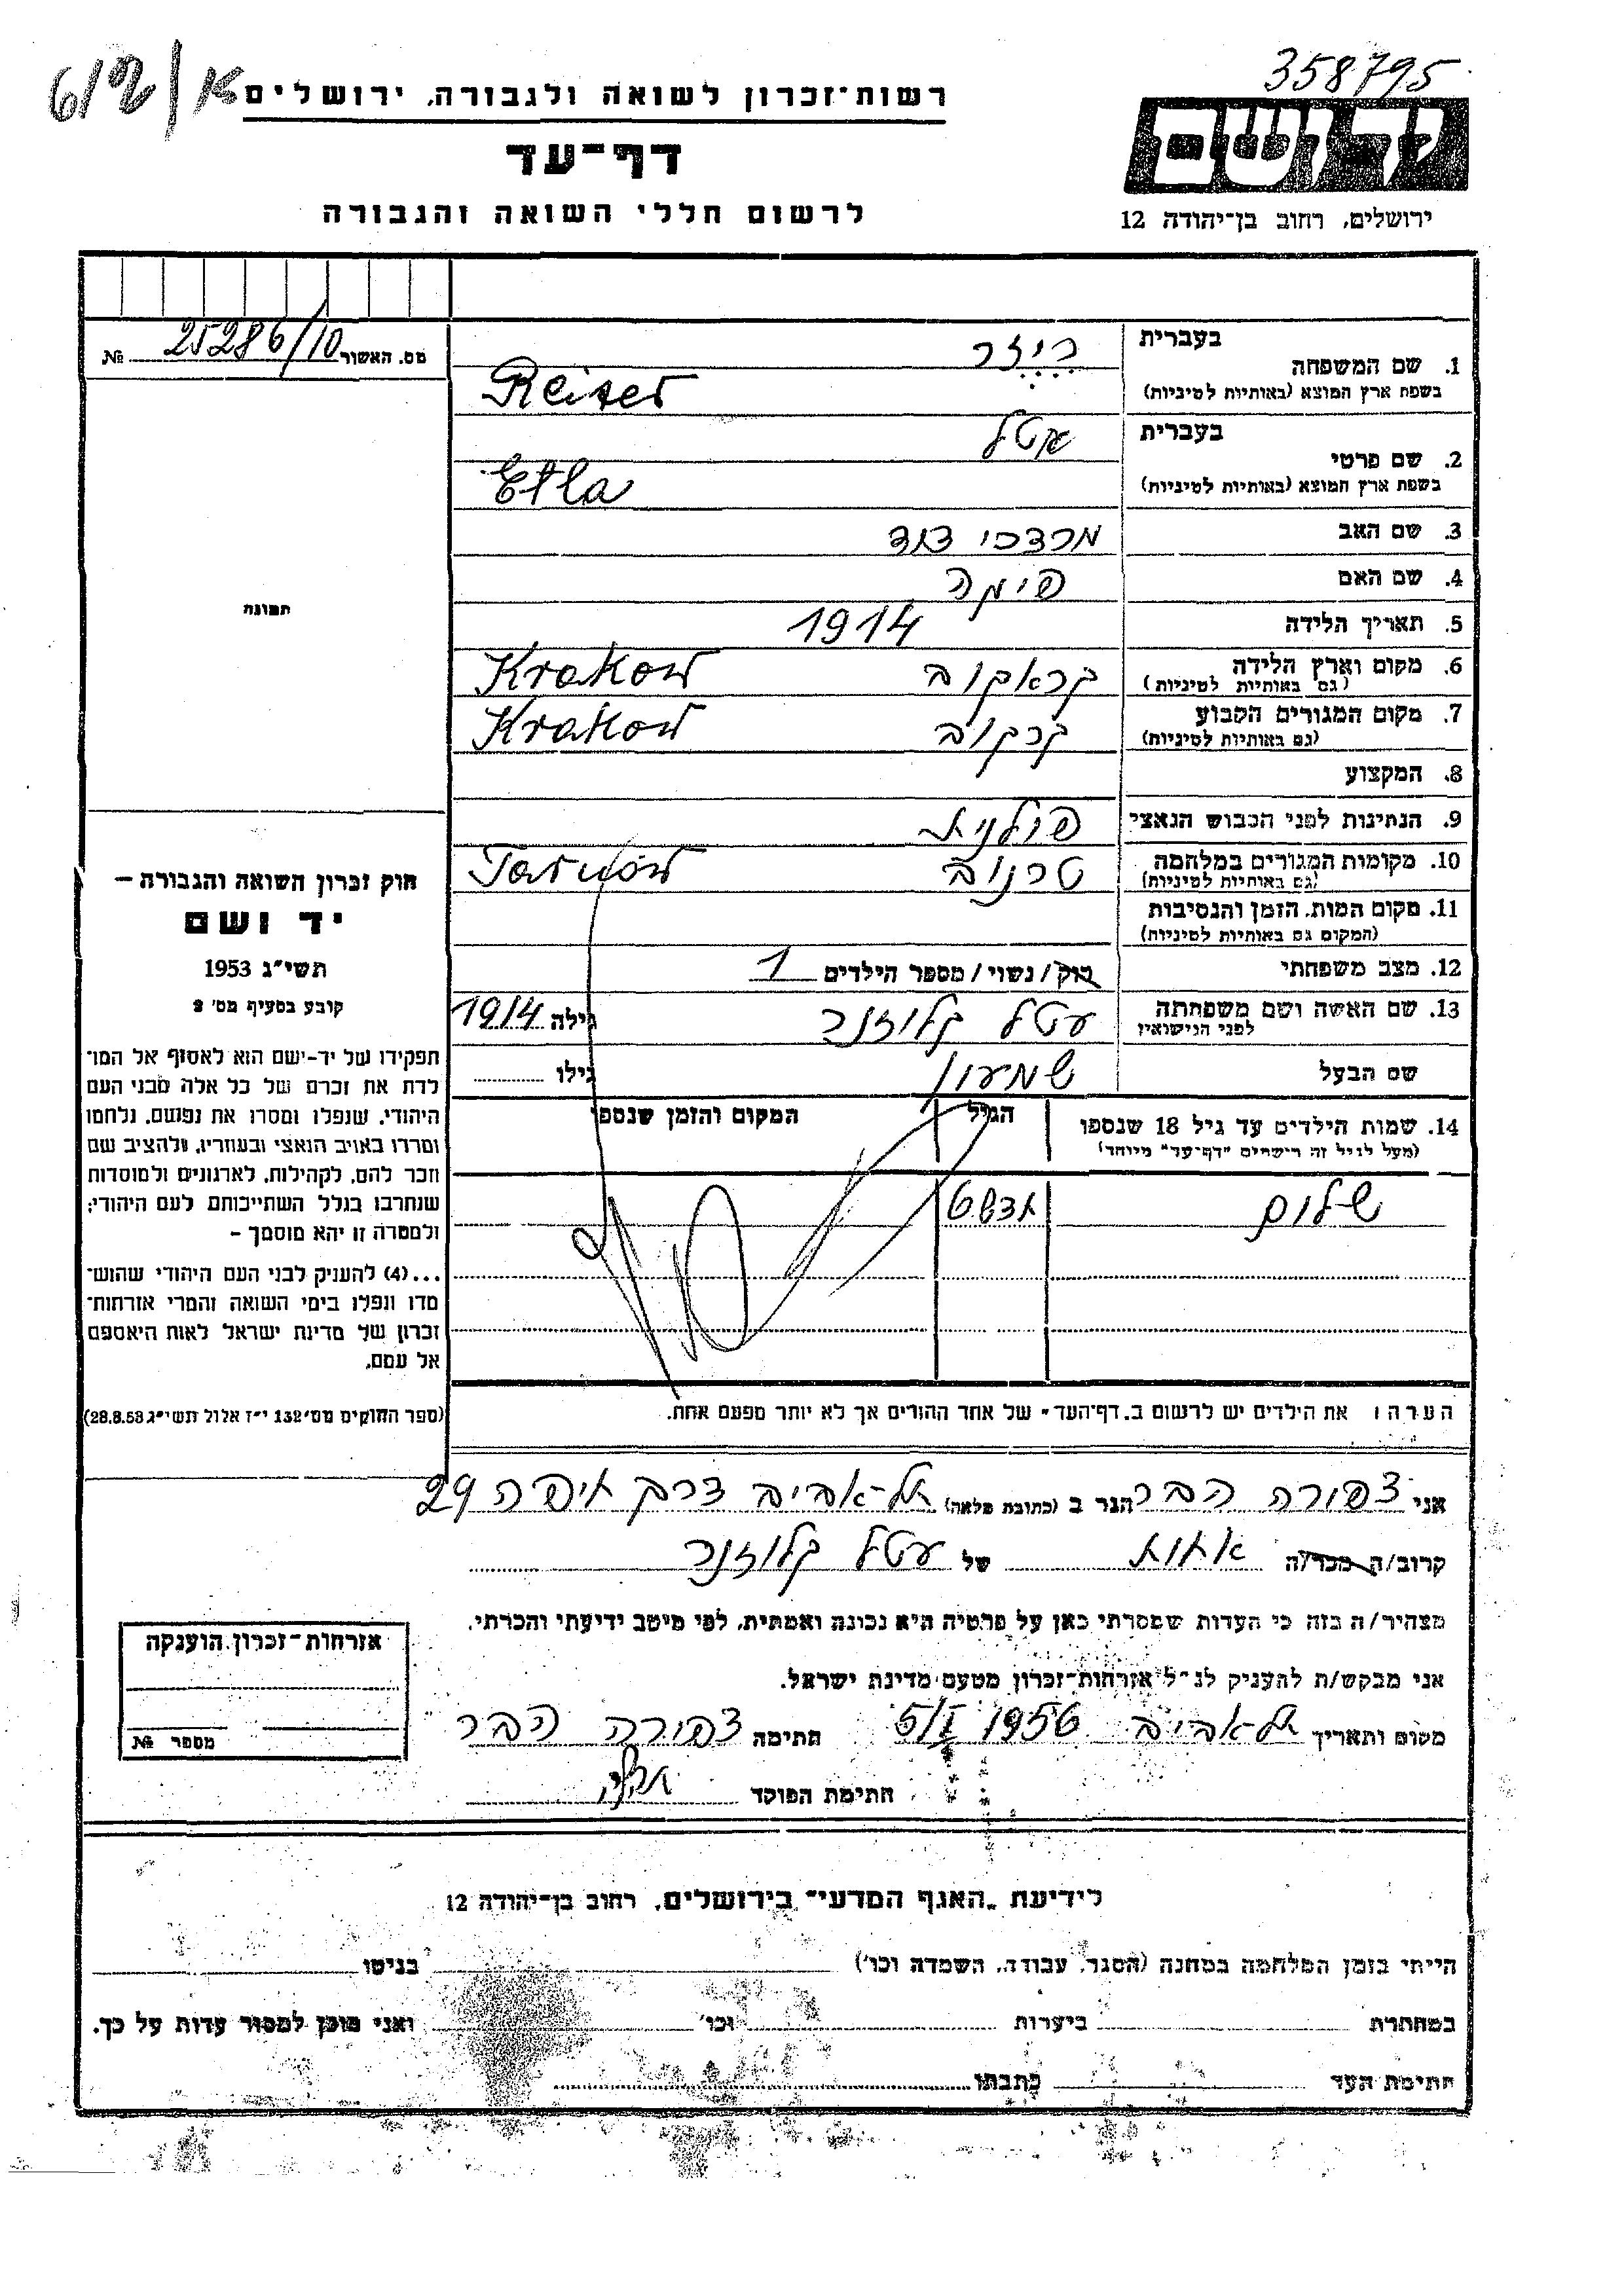 358795
6/12/א
רשות־זכרון לשואה ולגבורה, ירושלים
דף־עד
לרשום חללי השואה והגבורה
יד ושם
ירושלים, רחוב בן־יהודה 12
מס. האשור 25286/10 №
תמונה
חוק זכרון השואה והגבורה –
יד ושם
תשי״ג 1953
קובע בסעיף מס׳ 2
תפקידו של יד-ושם הוא לאסוף אל המו־
לדת את זכרם של כל אלה מבני העם
היהודי, שנפלו ומסרו את נפשם, נלחמו
ומרדו באויב הנאצי ובעוזריו, ולהציב שם
וזכר להם, לקהילות, לארגונים ולמוסדות
שנחרבו בגלל השתייכותם לעם היהודי;
ולמטרה זו יהא מוסמך –
...(4) להעניק לבני העם היהודי שהוש־
מדו ונפלו בימי השואה והמרי אזרחות־
זכרון של מדינת ישראל לאות היאספם
אל עמם.
(ספר החוקים מס׳ 132 י״ז אלול תשי״ג 28.8.53)
בעברית רייזר
1. שם המשפחה
בשפת ארץ המוצא (באותיות לטיניות) Reiser
בעברית אטל
2. שם פרטי
בשפת ארץ המוצא (באותיות לטיניות) Etla
3. שם האב מרדכי דוד
4. שם האם סימה
5. תאריך הלידה 1914
6. מקום וארץ הלידה קראקוב Krakow
(גם באותיות לטיניות)
7. מקום המגורים הקבוע קרקוב Krakow
(גם באותיות לטיניות)
8. המקצוע
9. הנתינות לפני הכבוש הנאצי פולנית
10. מקומות המגורים במלחמה טרנוב Tarnów
(גם באותיות לטיניות)
11. מקום המות, הזמן והנסיבות
(המקום גם באותיות לטיניות)
12. מצב משפחתי רוק/נשוי/מספר הילדים 1
13. שם האשה ושם משפחתה עטל קלוזנר גילה 1914
לפני הנישואין
שם הבעל שמעון גילו
14. שמות הילדים עד גיל 18 שנספו הגיל המקום והזמן שנספו
(מעל לגיל זה רושמים ״דף־עד״ מיוחד)
שלום
הערה: את הילדים יש לרשום ב„דף־העד״ של אחד ההורים אך לא יותר מפעם אחת.
אני צפורה הבר הגר ב (כתובת מלאה) תל-אביב דרך איפה 29
קרוב/ה מכר/ה אחות של עטל קלוזנר
מצהיר/ה בזה כי העדות שמסרתי כאן על פרטיה היא נכונה ואמתית, לפי מיטב ידיעתי והכרתי.
אני מבקש/ת להעניק לנ״ל אזרחות־זכרון מטעם מדינת ישראל.
מקום ותאריך תל אביב 5/I 1956 חתימה צפורה הבר
חתימת הפוקד
אזרחות־זכרון הוענקה
מספר №
לידיעת „האגף המדעי״ בירושלים, רחוב בן־יהודה 12
הייתי בזמן המלחמה במחנה (הסגר, עבודה, השמדה וכו׳) בגיטו
במחתרת ביערות וכו׳ ואני מוכן למסור עדות על כך.
חתימת העד כתבתו